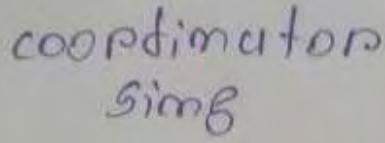 coordimator
Sim8